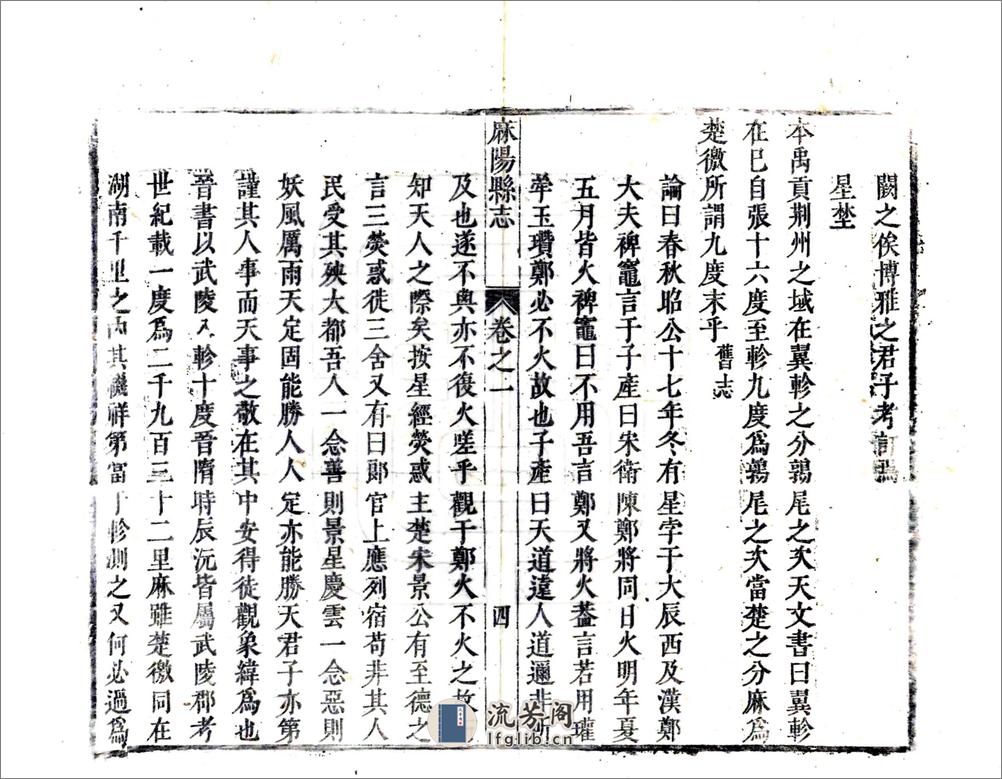 闕之俟博雅之君子考言焉
星埜
本禹貢荆州之域在翼軫之分鶉尾之次天文書曰翼軫
在巳自張十六度至軫九度爲鶉尾之次當楚之分麻爲
楚徼所謂九度末乎舊志
論曰春秋昭公十七年冬有星孛于大辰西及漢鄭
大夫裨竈言于子產曰宋衛陳鄭將同日火明年夏
五月皆火裨竈曰不用吾言鄭又將火葢言若用瓘
斝玉瓚鄭必不火故也子產曰天道遠人道邇非所
麻陽縣志
卷之一
四
及也遂不與亦不復火嗟乎觀于鄭火不火之故
知天人之際矣按星經熒惑主楚宋景公有至德之
言三熒惑徙三舍又有曰郎官上應列宿苟非其人
民受其殃大都吾人一念善則景星慶雲一念惡則
妖風厲雨天定固能勝人人定亦能勝天君子亦第
謹其人事而天事之敬在其中安得徒觀象緯爲也
晉書以武陵入軫十度晉隋時辰沅皆屬武陵郡考
世紀載一度爲二千九百三十二里麻雖楚徼同在
湖南千里之內其禨祥第當于軫測之又何必過爲
流芳阁
lfglib.cn